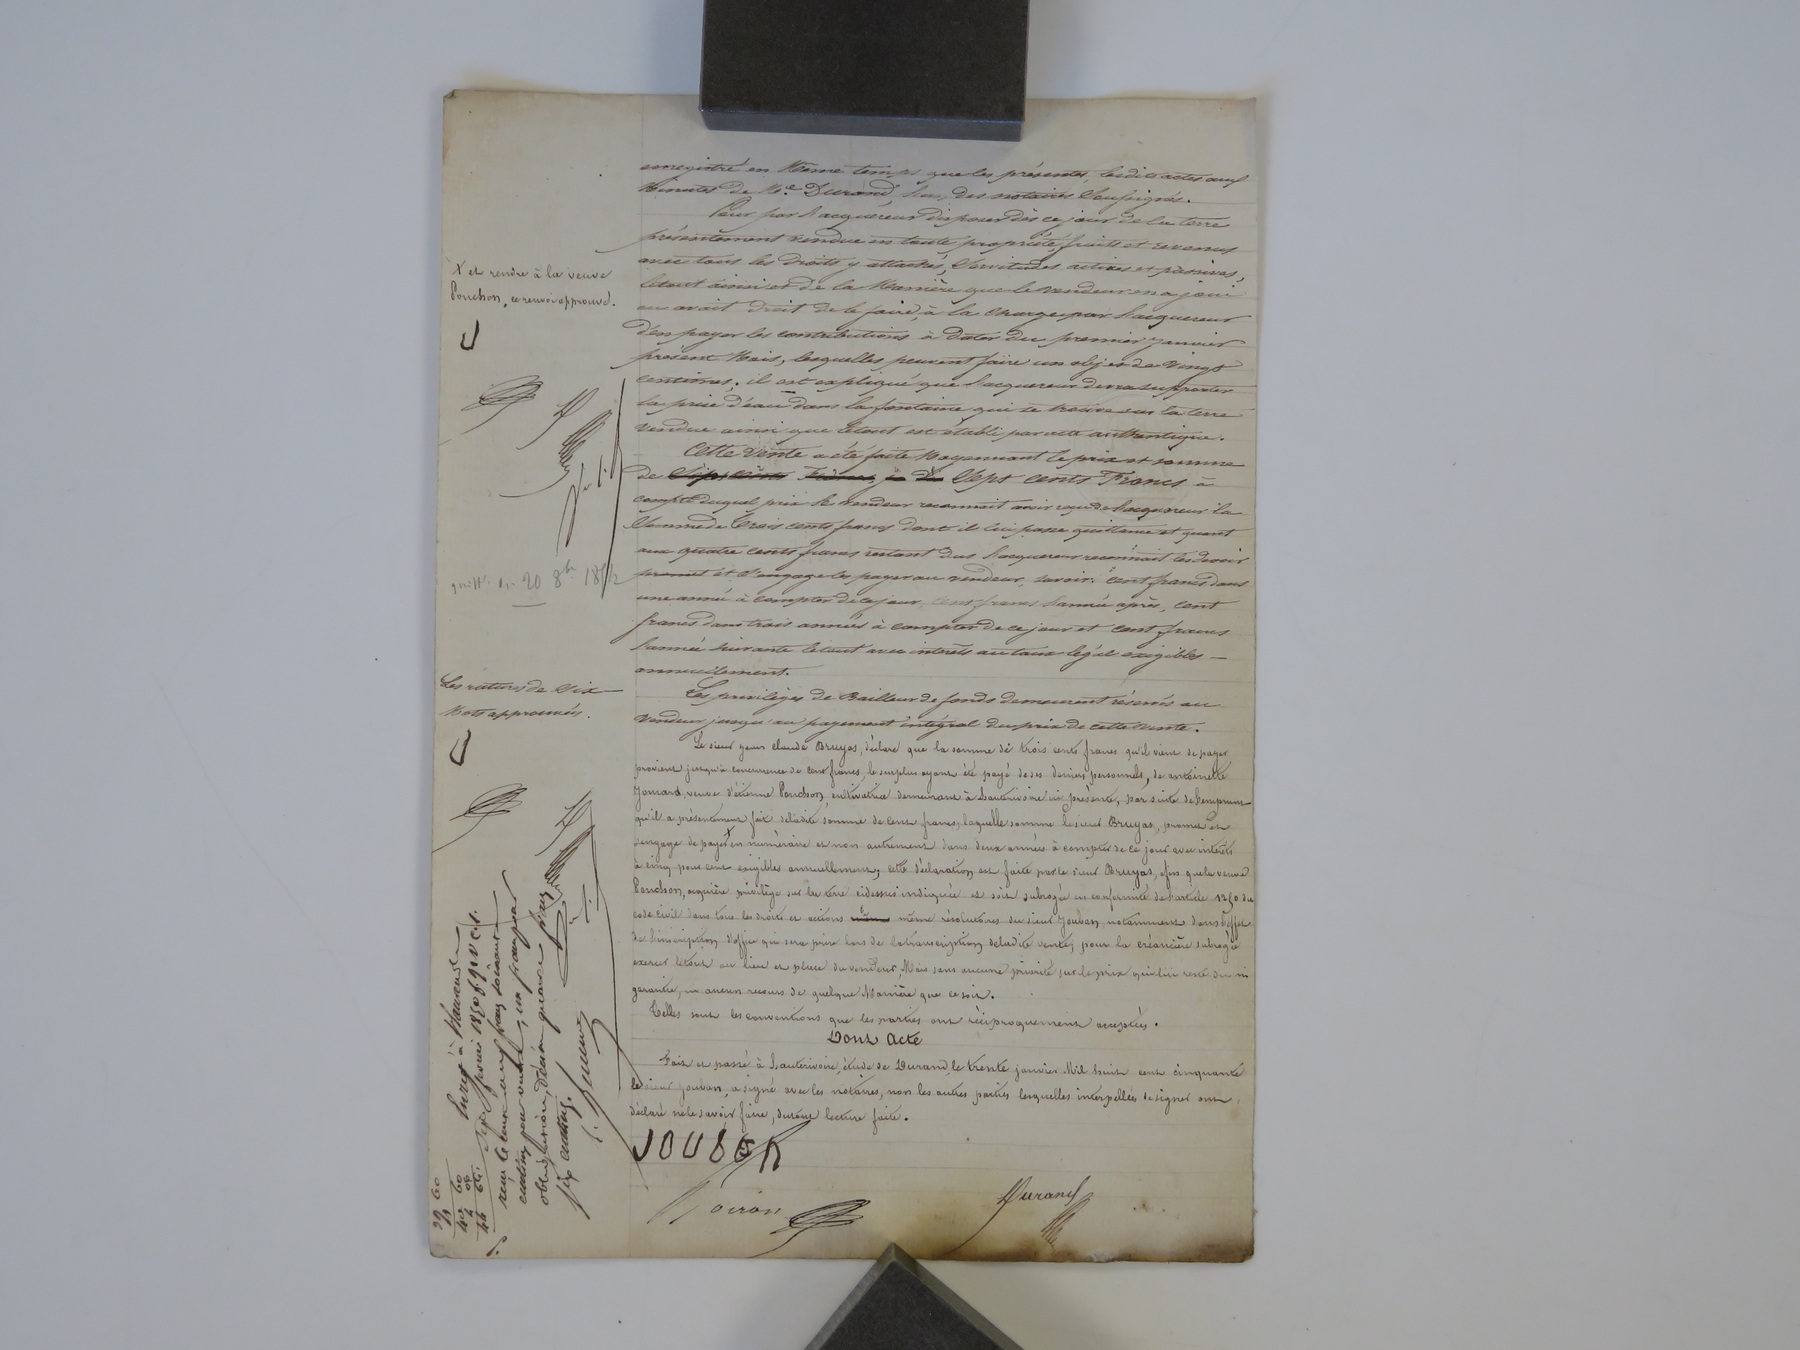 enregistré en Même temps que les présentes, lesdits actes aux
Minutes de Me. Durand, l'un, des notaires Soussignés.
Pour par l'acquéreur disposer dès ce jour de la terre
présentement vendue en toute propriété, fruits et revenus
avec tous les droits y attachés, Servitudes actives et passives,
letout ainsi et de la Manière que le vendeur en a joui
ou avait droit de le faire, à la charge par l'acquéreur
d'en payer les contributions à dater du premier janvier
présent Mois, lesquelles peuvent faire un objet de Vingt
centimes; il est expliqué que l'acquéreur devra supporter
la prise d'eau dans la fontaine qui se trouve sur la terre
vendue ainsi que letout est établi par acte authentique.
Cette vente a été faite Moyennant le prix et somme
de Sept cents Francs à
compte duquel prix le vendeur reconnait avoir reçu de l'acquéreur la
Somme de Trois cents francs dont il lui passe quittance et quant
aux quatre cents francs restant dus l'acquéreur reconnait les devoir
promet et s'engage les payer au vendeur, savoir: cent francs dans
une année à compter de ce jour, cent francs l'année après, cent
francs dans trois années à compter de ce jour et cent francs
l'année suivante letout avec intérêts au taux légal exigibles
annuellement.
Les privilèges de Bailleur de fonds demeurent réservés au
Vendeur jusqu'au payement intégral du prix de cette vente.
Le sieur jean claude Bruyas, déclare que la somme de trois cents francs qu'il vient de payer
provient jusqu'à concurrence de cent francs, le surplus ayant été payé de ses deniers personnels, de antoinette
Jomard, veuve d'étienne Ponchon, cultivatrice demeurant à Sauterivoire ici présente, par suite de l'emprunt
qu'il a présentement fait deladite somme de cent francs, laquelle somme le sieur Bruyas, promet et
s'engage de payer X en numéraire et non autrement dans deux années à compter de ce jour avec intérêts
à cinq pour cent exigibles annuellement, cette déclaration est faite par le sieur Bruyas, afin que la veuve
Ponchon, acquière privilège sur la terre cidessus indiquée et soit subrogée en conformité de l'article 1250 du
code civil dans tous les droits et actions même résolutoires du sieur Jouban, notamment dans l'effet
de l'inscription d'office qui sera prise lors de la transcription deladite vente, pour la créancière subrogée
exercer letout au lieu et place du vendeur, Mais sans aucune priorité sur le prix qui lui reste du ni
garantie, ni aucun recours de quelque Manière que ce soit.
Telles sont les conventions que les parties ont réciproquement acceptées.
Dont Acte
Fait et passé à Sauterivoire, étude de Durand, le trente janvier Mil huit cent cinquante
le sieur Jouban, a signé avec les notaires, non les autres parties lesquelles interpellées de signer ont
déclaré ne le savoir faire, dutout lecture faite.
JOUBAN
Poiron
Durand
X et rendre à la veuve
Ponchon, ce renvoi approuvé.
quitt. du 20 8bre
Les ratures de Six
Mots approuvées.